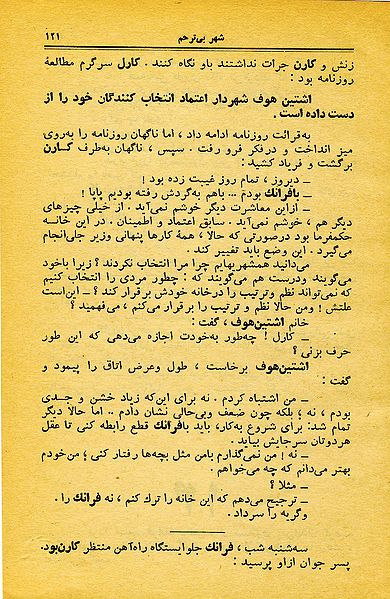 شهر بی‌ترحم ۱۲۱
زنش و کارن جرات نداشتند باو نگاه کنند. کارل سرگرم مطالعهٔ
روزنامه بود :
اشتین هوف شهردار اعتماد انتخاب کنندگان خود را از
دست داده است.
به‌قرائت روزنامه ادامه داد، اما ناگهان روزنامه را به‌روی
میز انداخت و درفکر فرو رفت. سپس، ناگهان به‌طرف کارن
برگشت و فریاد کشید :
ــ دیروز، تمام روز غیبت زده بود !
ــ بافرانك بودم ... باهم به‌گردش رفته بودیم پاپا !
ــ ازاین معاشرت دیگر خوشم نمی‌آید. از خیلی چیزهای
دیگر هم، خوشم نمی‌آید. سابق اعتماد و اطمینان، در این خانه
حکمفرما بود درصورتی که حالا، همهٔ کارها پنهانی وزیر جلی‌انجام
می‌گیرد. این وضع باید تغییر کند.
می‌دانید همشهریهایم چرا مرا انتخاب نکردند؟ زیرا باخود
می‌گویند ودرست هم می‌گویند که : چطور مردی را انتخاب کنیم
که نمی‌تواند نظم وترتیب را درخانه خودش برقرار کند؟ ــ این‌است
علتش! ومن حالا نظم و ترتیب را برقرار می‌کنم، می‌فهمید؟
خانم اشتین‌هوف، گفت :
ــ کارل! چه‌طور به‌خودت اجازه می‌دهی که این طور
حرف بزنی؟
اشتین‌هوف برخاست، طول وعرض اتاق را پیمود و
گفت :
ــ من اشتباه کردم. نه برای این‌که زیاد خشن و جدی
بودم، نه؛ بلکه چون ضعف وبی‌حالی نشان دادم .. اما حالا دیگر
تمام شد: برای شروع به‌کار، باید بافرانك قطع رابطه کنی تا عقل
هردوتان سرجایش بیاید.
ــ نه! من نمی‌گذارم بامن مثل بچه‌ها رفتار کنی؛ من‌خودم
بهتر می‌دانم که چه می‌خواهم.
ــ مثلا ؟
ــ ترجیح می‌دهم که این خانه را ترك کنم، نه فرانك را.
وگریه را سرداد.
سه‌شنبه شب، فرانك جلوایستگاه راه‌آهن منتظر کارن‌بود.
پسر جوان ازاو پرسید :